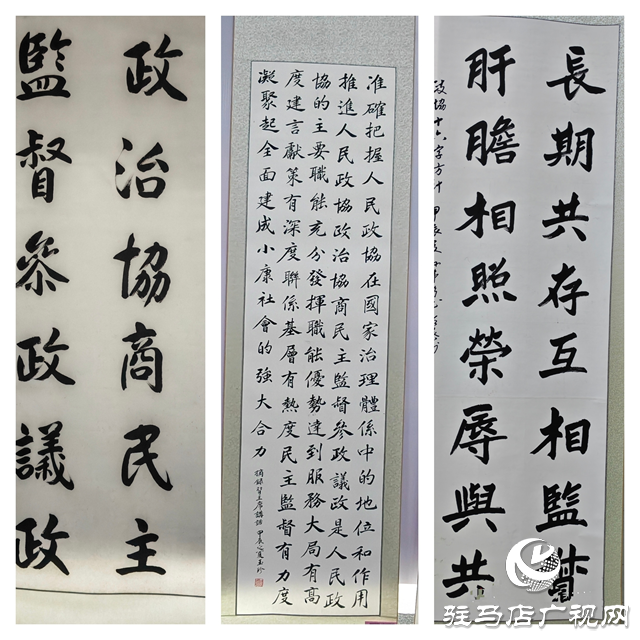 政治協商民主
監督參政議政
准確把握人民政協在國家治理體係中的地位和作用
推進人民政協政治協商民主監督參政議政是人民政
協的主要職能充分發揮職能優勢達到服務大局有高
度建言獻策有深度聯係基層有熱度民主監督有力度
凝聚起全面建成小康社會的強大合力
摘錄習主席講話 甲辰之夏玉珍
長期共存互相監督
肝膽相照榮辱與共
政協十六字方針 甲辰
驻马店广视网